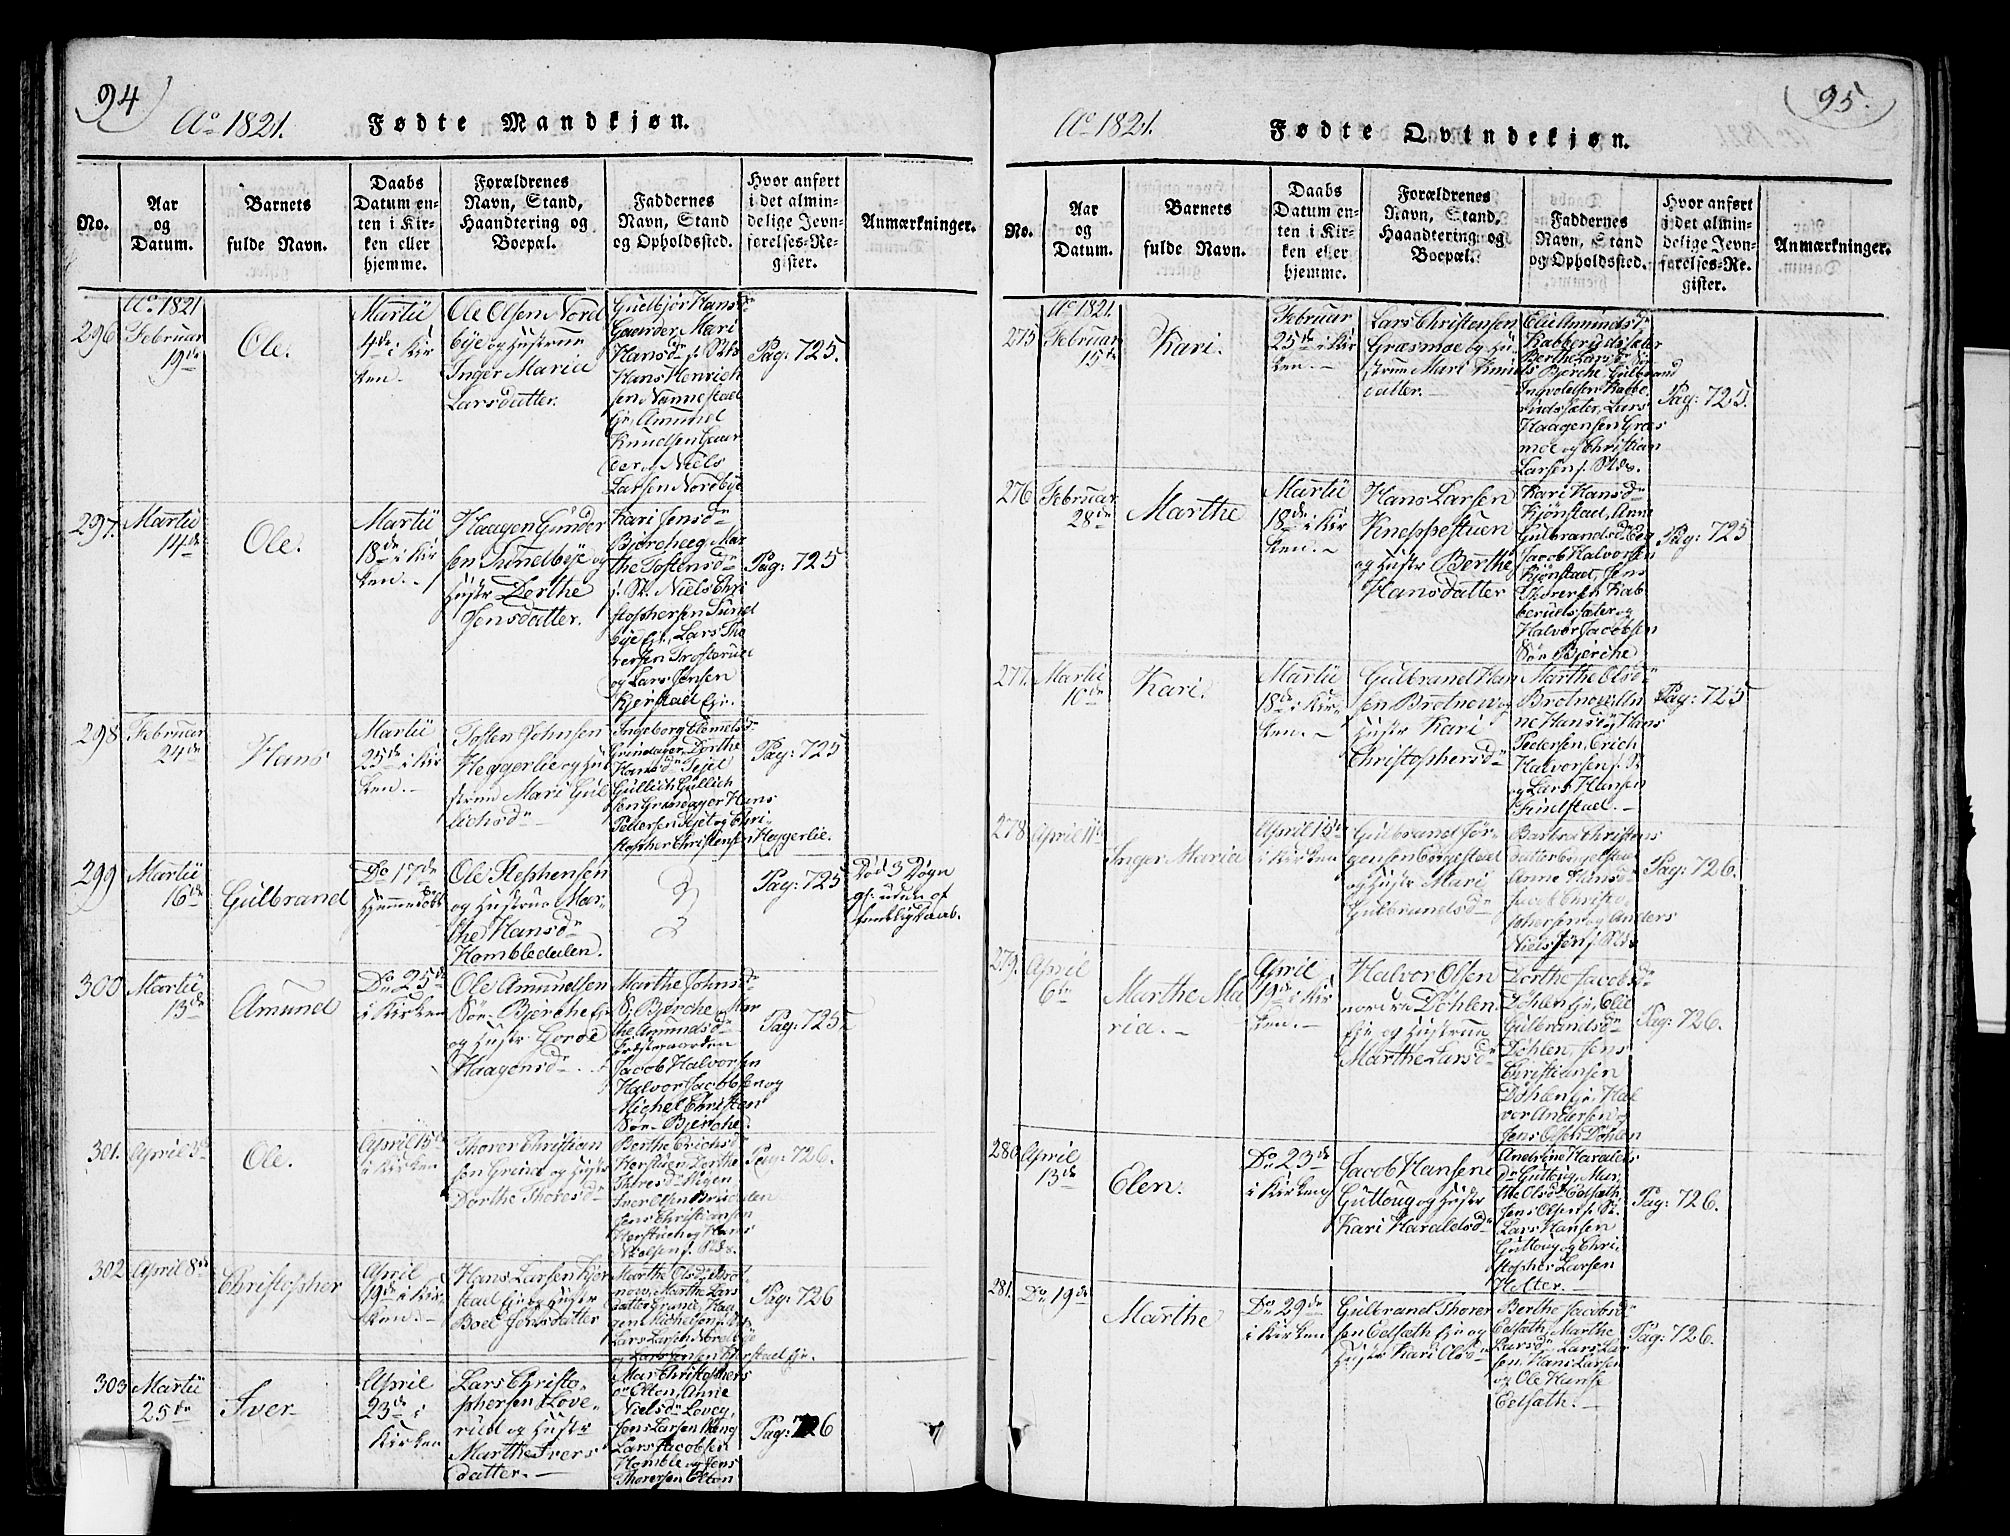 94
Ao 1821. Fødte Mandkjøn.
No.
Aar
og
Datum.
Barnets
fulde Navn.
Daabs
Datum en-
ten i Kir-
ken eller
hjemme.
Forældrenes
Navn, Stand,
Haandtering og
Boepæl.
Faddernes
Navn, Stand
og Opholdssted.
Hvor anført
i det almin-
delige Jevn-
førelses-Re-
gister.
Anmærkninger.
Ao 1821
296 Februar
19de
Ole.
Martii
4de i Kir
ken.
Ole Olsen Nord
bye og Hustrue
Inger Maria
Larsdatter.
Gudbjør Hansdr
Gaarder, Mari
Hansdr i. Stds
Hans Henrich
sen Nannestad
Amund
Knudsen Gaar
der, Niels
Larsen Nordbye
Pag: 725.
297. Martii
14de
Ole.
Martii
18de i Kir
ken.
Haagen Gunder
sen Sundbye og
Hustr Dorthe
Jensdatter.
Kari Jensdr
Bjørcheeg Mar
the Tostensdr
i. St. Niels Chri
stophersen Sund
bye Eje, Lars Tho
rersen Trosterud
og Lars Jensen
Kjerstad Eje.
Pag: 725
298 Februar
24de
Hans
Martii
25de i Kir
ken.
Tosten Johnsen
Heggerlie og Hu
strue Mari Gul
lichsdr
Ingeborg Clemetsdr
Grindager, Dorthe
Hansdr Tejet
Gullich Gullich
sen Grindager Hans
Pedersen Tejet og Chri-
stopher Christensen Heggerlie.
Pag: 725
299 Martii
16de
Gulbrand
Do 17de
Hjemmedøbt
Ole Stephensen
og Hustrue Mar-
the Hansdr
Hombledalen.
Pag: 725
Død 3 Døgn
gl. uden of
fentlig Daab.
300 Martii
13de
Amund
Do 25de
i Kirken
Ole Amundsen
Sør Bjerche Eje
og Hustr Gorde
Haagensdr
Marthe Johnsdr
S. Bjerche, Mar
the Amundsdr
Præstegaarden
Jacob Halvorsen
Halvor Jacobsen og
Michel Christen
Sør Bjerche.
Pag: 725
301. April 5te
Ole.
April 15de
i Kirken
Thorer Christian
sen Greina og Hustr
Dorthe Thoresdr
Berthe Erichsdr
Horstuen, Dorthe
Thoresdr Rigen
Iver Olsen Bruedalen
Jens Christiansen
Horstue og Hans
Nielsen i. Stds.
Pag: 726.
302 April 8de
Christopher
April
19de i Kir-
ken.
Hans Larsen Kjer
stad Eje og Hustr
Boel Jensdatter
Marthe Olsdr Brot-
now, Marthe Lars
datter Grana, Haa
gen Michelsen i. St.
Lars Larsen Nordbye
og Lars Jensen Kjerstad Eje.
Pag: 726
303 Martii
25de
Iver
April
23de i
Kirken
Lars Christo-
phersen Løve-
rud og Hustr
Marthe Ivers
datter.
Mar Christophers
dr Elton, Anne
Nielsdr Lovey,
Jens Larsen
Lars Jacobsen
Homble og Jens
Thorersen Elton
Pag: 726
95.
Ao 1821. Fødte Qvindekjøn.
No.
Aar
og
Datum.
Barnets
fulde Navn.
Daabs
Datum en-
ten i Kir-
ken eller
hjemme.
Forældrenes
Navn, Stand,
Haandtering og
Boepæl.
Faddernes
Navn, Stand
og Opholdssted.
Hvor anført
i det almin-
delige Jevn-
førelses-Re-
gister.
Anmærkninger.
Ao 1821.
275 Februar
15de
Kari.
Februar
25de i Kir
ken.
Lars Christensen
Græsmoe og Hu
strue Mari Knuds
datter.
Elie Amundsdr
Kabberudsæter
Berthe Larsdr Sør
Bjerche Gulbrand
Ingvoldsen Kabbe
rudsæter, Lars
Haagensen Græs
moe og Christian
Larsen i. Stds.
Pag: 725.
276 Februar
28de
Marthe
Martii
18de i Kir
ken.
Hans Larsen
Kneppestuen
og Hustr Berthe
Hansdatter
Kari Hansdr
Kjønstad, Anne
Gulbrandsdr Eeg
Jacob Halvorsen
Kjønstad, Jens
Thorersen Kab
berudsæter og
Halvor Jacobsen
Sør Bjerche
Pag: 725
277. Martii
10de
Kari.
Martii
18de i Kir
ken.
Gulbrand Han
sen Brotnow og
Hustr Kari
Christophersdr
Marthe Olsdr
Brotnow, An
ne Hansdr, Hans
Pedersen, Erich
Halvorsen i. St
og Lars Hansen
Findstad.
Pag: 725
278 April 11te
Inger Maria
April 15de
i Kirken
Gulbrand Jør-
gensen Engelstad
og Hustr Mari
Gulbrandsdr
Barbra Christens
datter Engelstad
Anne Hansdr
Jacob Christo
phersen og Anders
Nielsen i. Stds
Pag: 726.
279. April
6te
Marthe Ma
ria.
April
19de i Kir
ken.
Halvor Olsen
nordre Döhlen
Eje og Hustrue
Marthe Larsdr
Dorthe Jacobsdr
Döhlen Eje, Elie
Gulbrandsdr
Döhlen, Jens
Christiansen
Döhlen Eje, Hal
vor Andersen og
Jens Olsen Döhlen
Pag: 726.
280 April
13de
Elen.
Do 23de
i Kirken
Jacob Hansen
Guttoug og Hustr
Kari Haraldsdr
Andrine Haralds
dr Guttoug, Mar
the Olsdr Eelsæth,
Jens Olsen i. St.
Lars Hansen
Guttoug og Chri
stopher Larsen
Holter.
Pag: 726.
281. Do 19de
Marthe
Do 29de
i Kirken
Gulbrand Thorer
sen Eelsæth Eje og
Hustr Kari Olsdr
Berthe Jacobsdr
Eelsæth, Marthe
Larsdr, Lars Lar
sen, Hans Larsen
og Ole Hansen
Eelsæth.
Pag: 726.